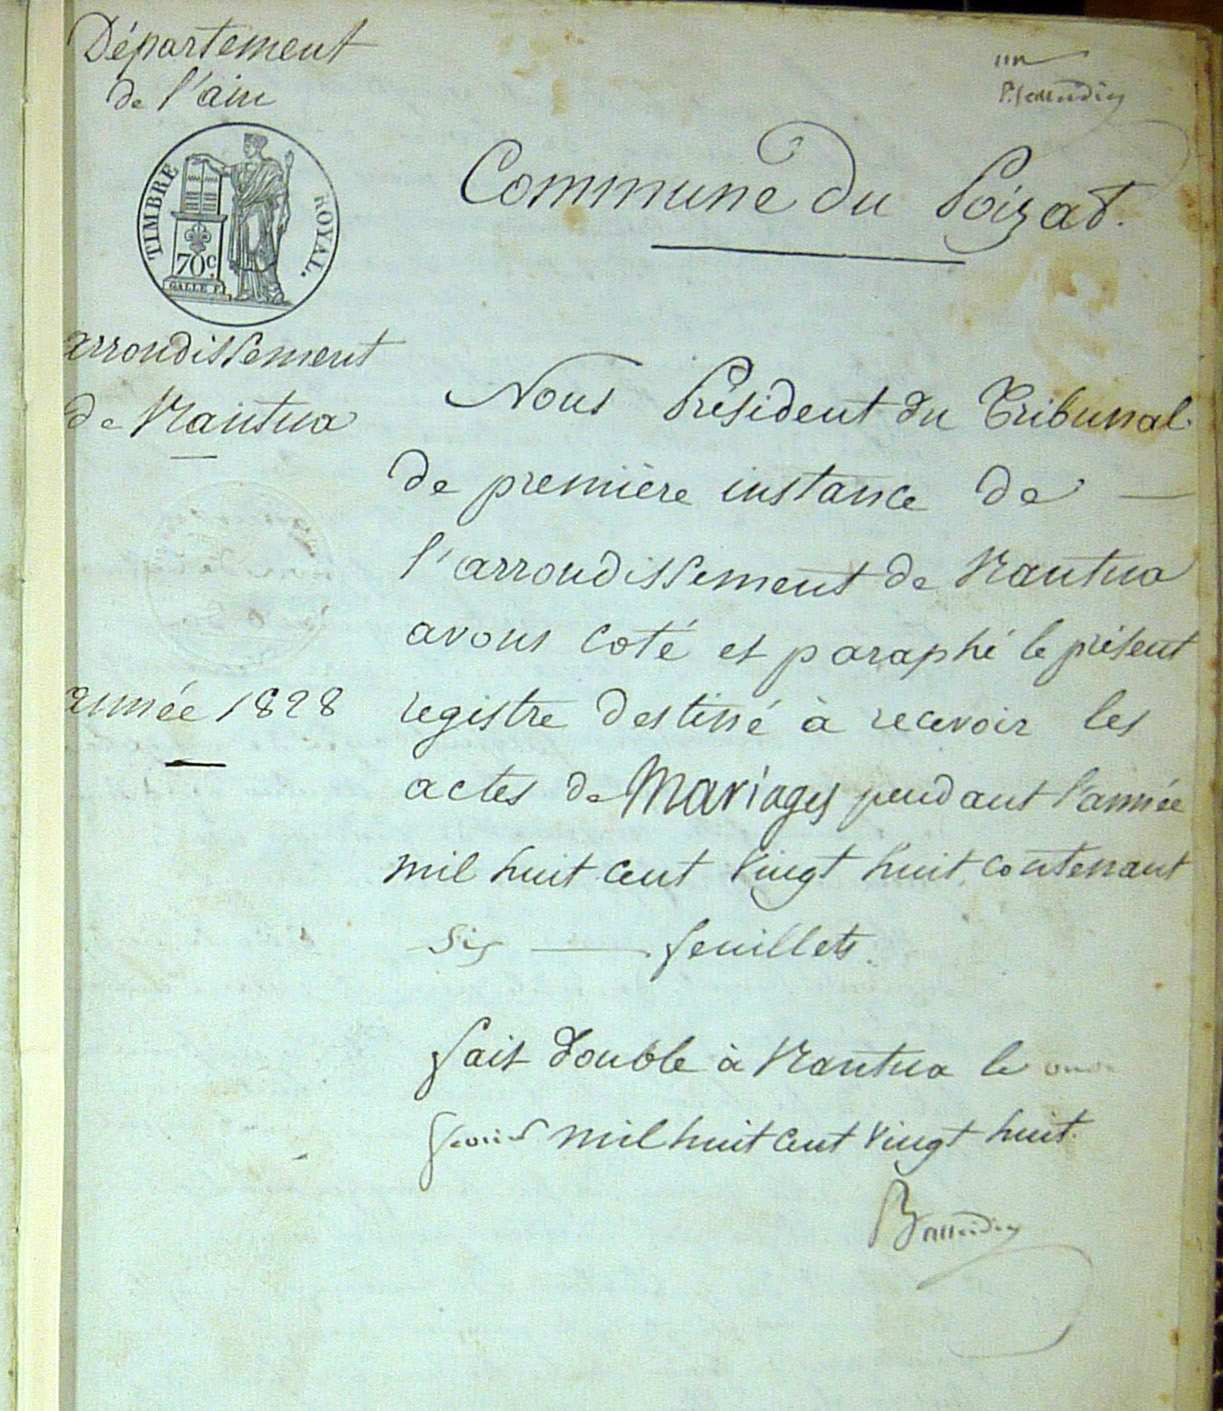 Département
de l'ain
un
TIMBRE ROYAL.
70c.
GALLE F.
Commune du Poizat.
arrondissement
de Nantua
Nous Président du Tribunal
de première instance de
l'arrondissement de Nantua
avons coté et paraphé le présent
année 1828
registre destiné à recevoir les
actes de Mariages pendant l'année
mil huit cent vingt huit contenant
Six feuillets.
fait double à Nantua le
mil huit cent vingt huit.